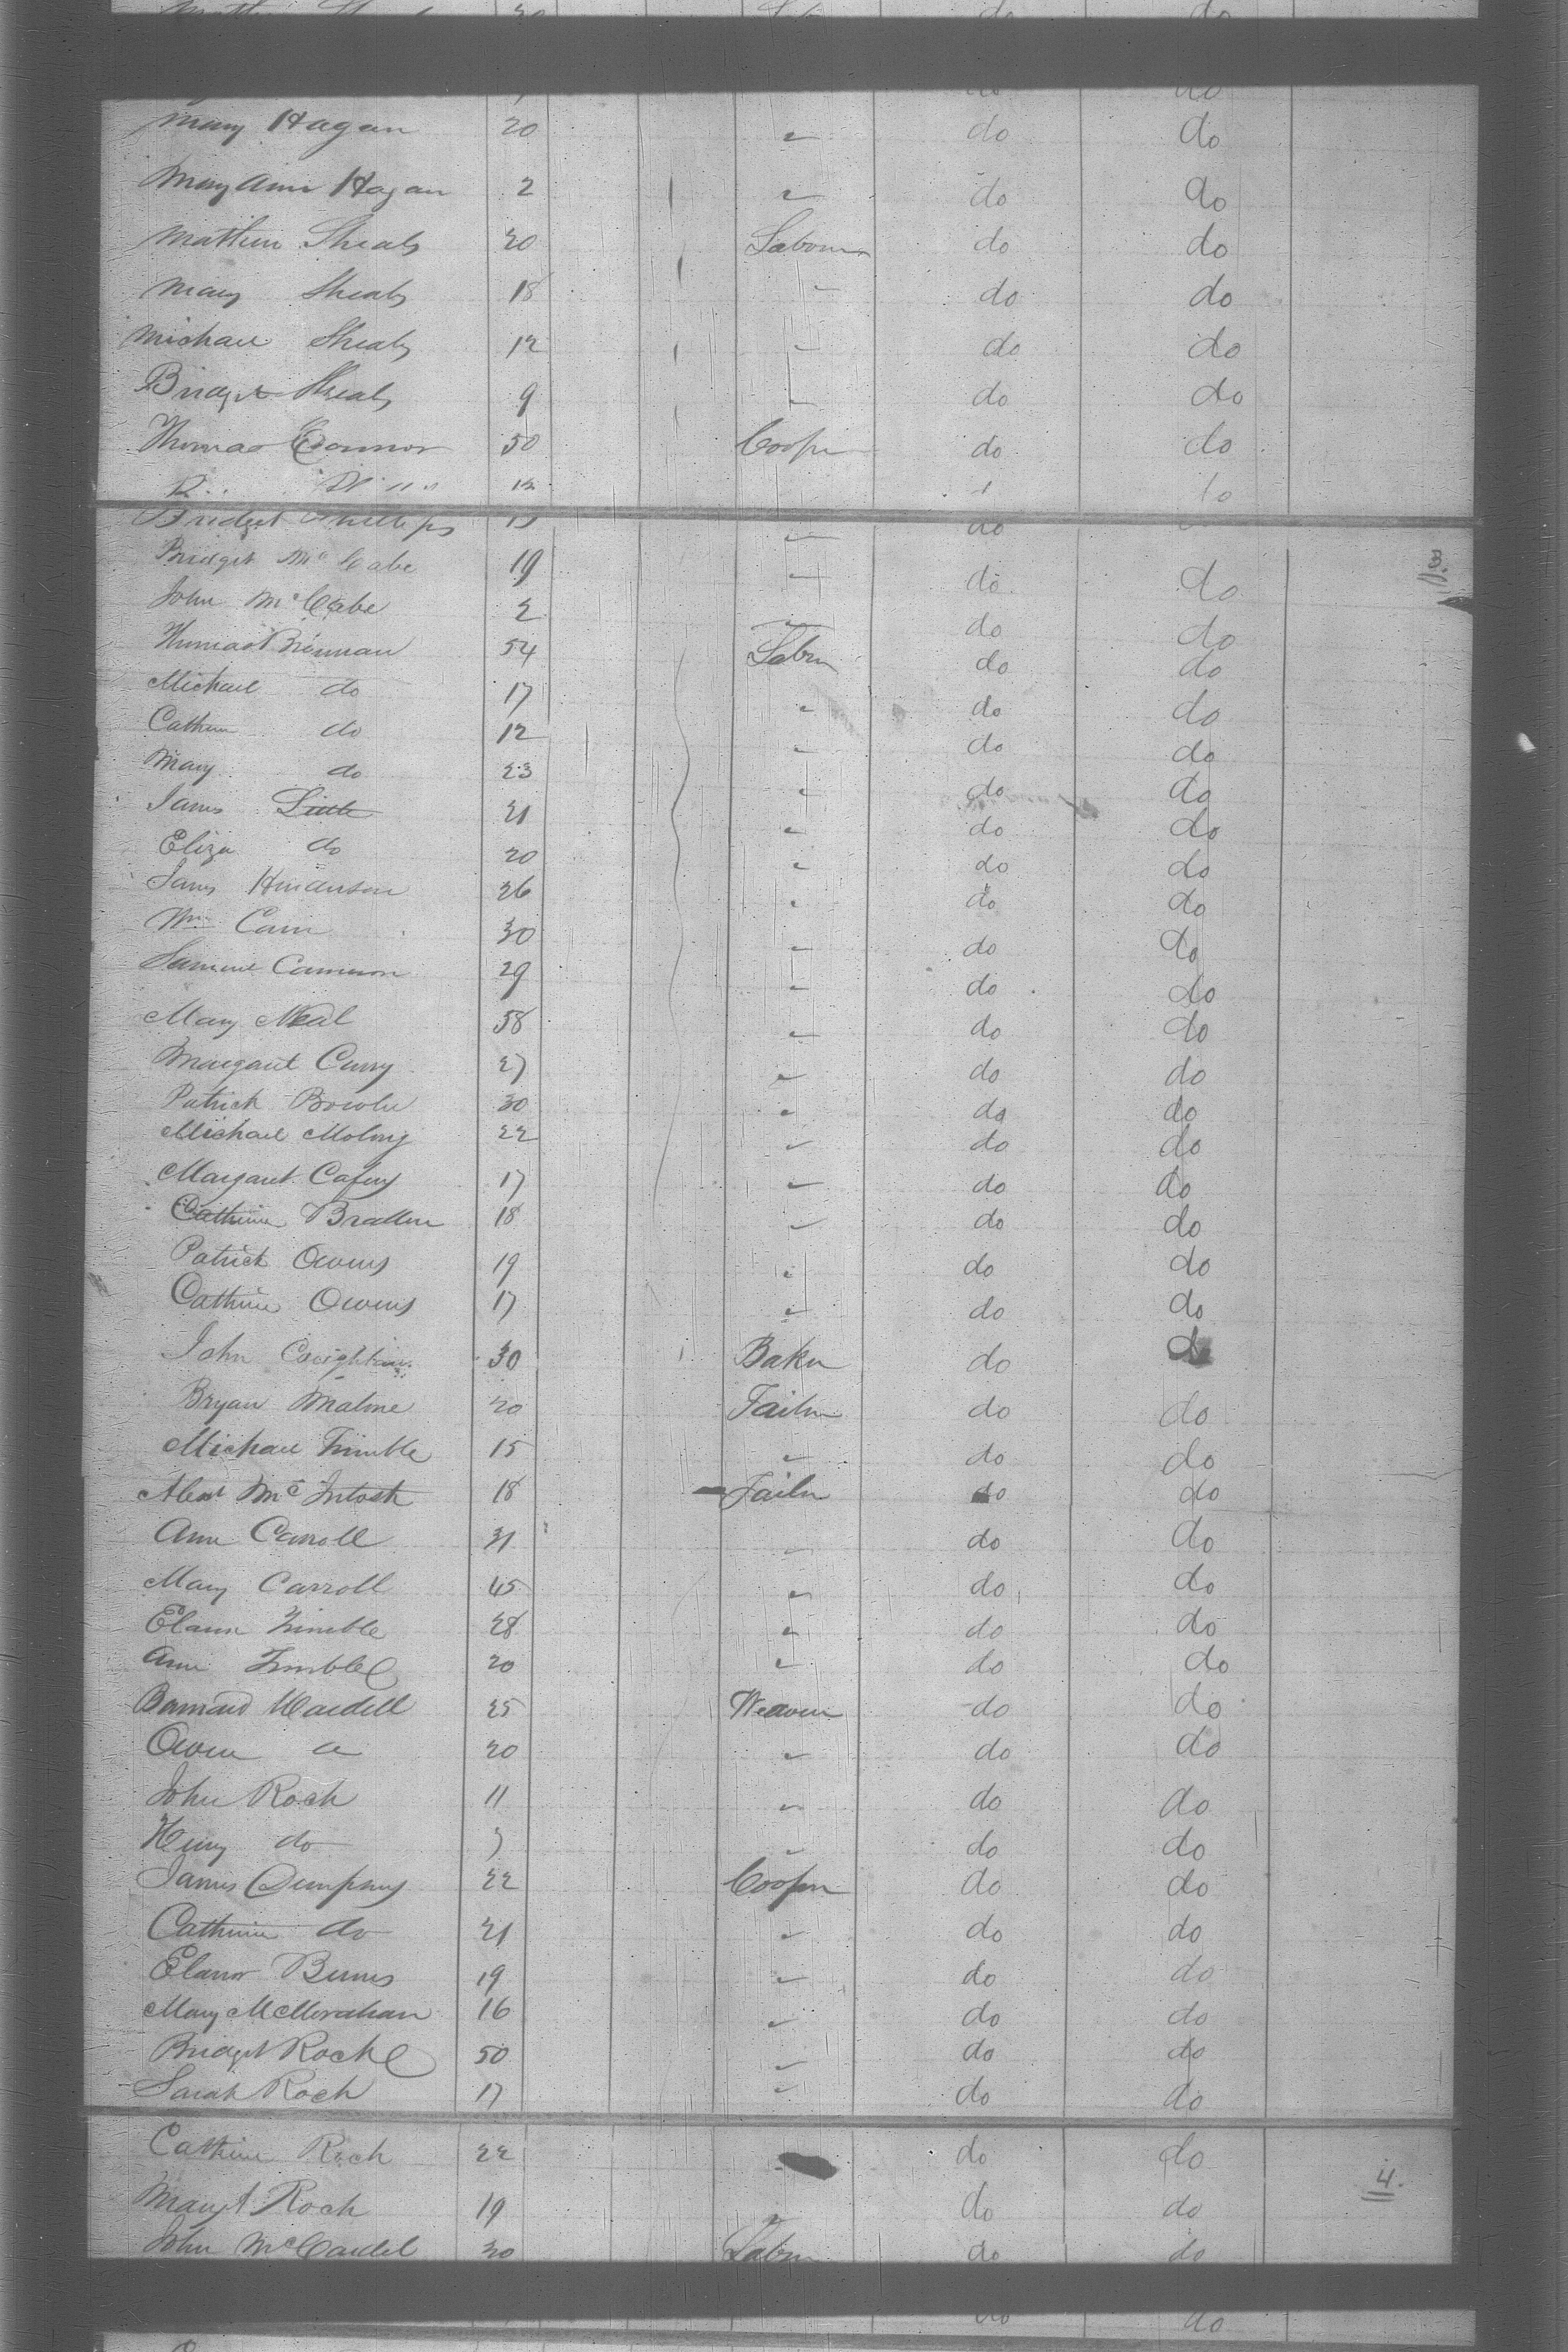 do do
Mary Hagan 20 " do do
Mary Ann Hagan 2 " do do
Mathew Sheals 20 Labour do do
Mary Sheals 18 " do do
Michael Sheals 12 " do do
Bridget Sheals 9 " do do
Thomas Connor 50 Cooper do do
Bridget Phillips 13 " do
Bridget McCabe 19 " do do
3.
John McCabe 2 " do do
Thomas Brinnan 54 Labr do do
Michael do 17 " do do
Cathern do 12 " do do
Mary do 23 " do do
James Little 21 " do do
Eliza do 20 " do do
James Hinderson 26 " do do
Wm Cain 30 " do do
Samuel Cameron 29 " do do
Mary Neal 58 " do do
Margaret Curry 27 " do do
Patrick 30 " do do
Michael Molony 22 " do do
Margaret Cafery 17 " do do
Catherine 18 " do do
Patrick Owens 19 " do do
Catherine Owens 17 " do do
John Creighton 30 Baker do do
Bryan Malone 20 Tailor do do
Michael Trimble 15 " do do
Alexr McIntosh 18 Tailor do do
Ann Carroll 31 " do do
Mary Carroll 45 " do do
Trimble 28 " do do
Ann Trimble 20 " do do
Barnard 25 Weaver do do
Owen 20 " do do
John Roch 11 " do do
Henry do 3 " do do
James Dumphny 22 Cooper do do
Catherine do 21 " do do
Elanor Burns 19 " do do
Mary 16 " do do
Bridget Roch 50 " do do
Sarah Roch 17 " do do
Catherine Roch 22 do do
4.
Margt Roch 19 " do do
John McCardel 30 Labr do do
do do